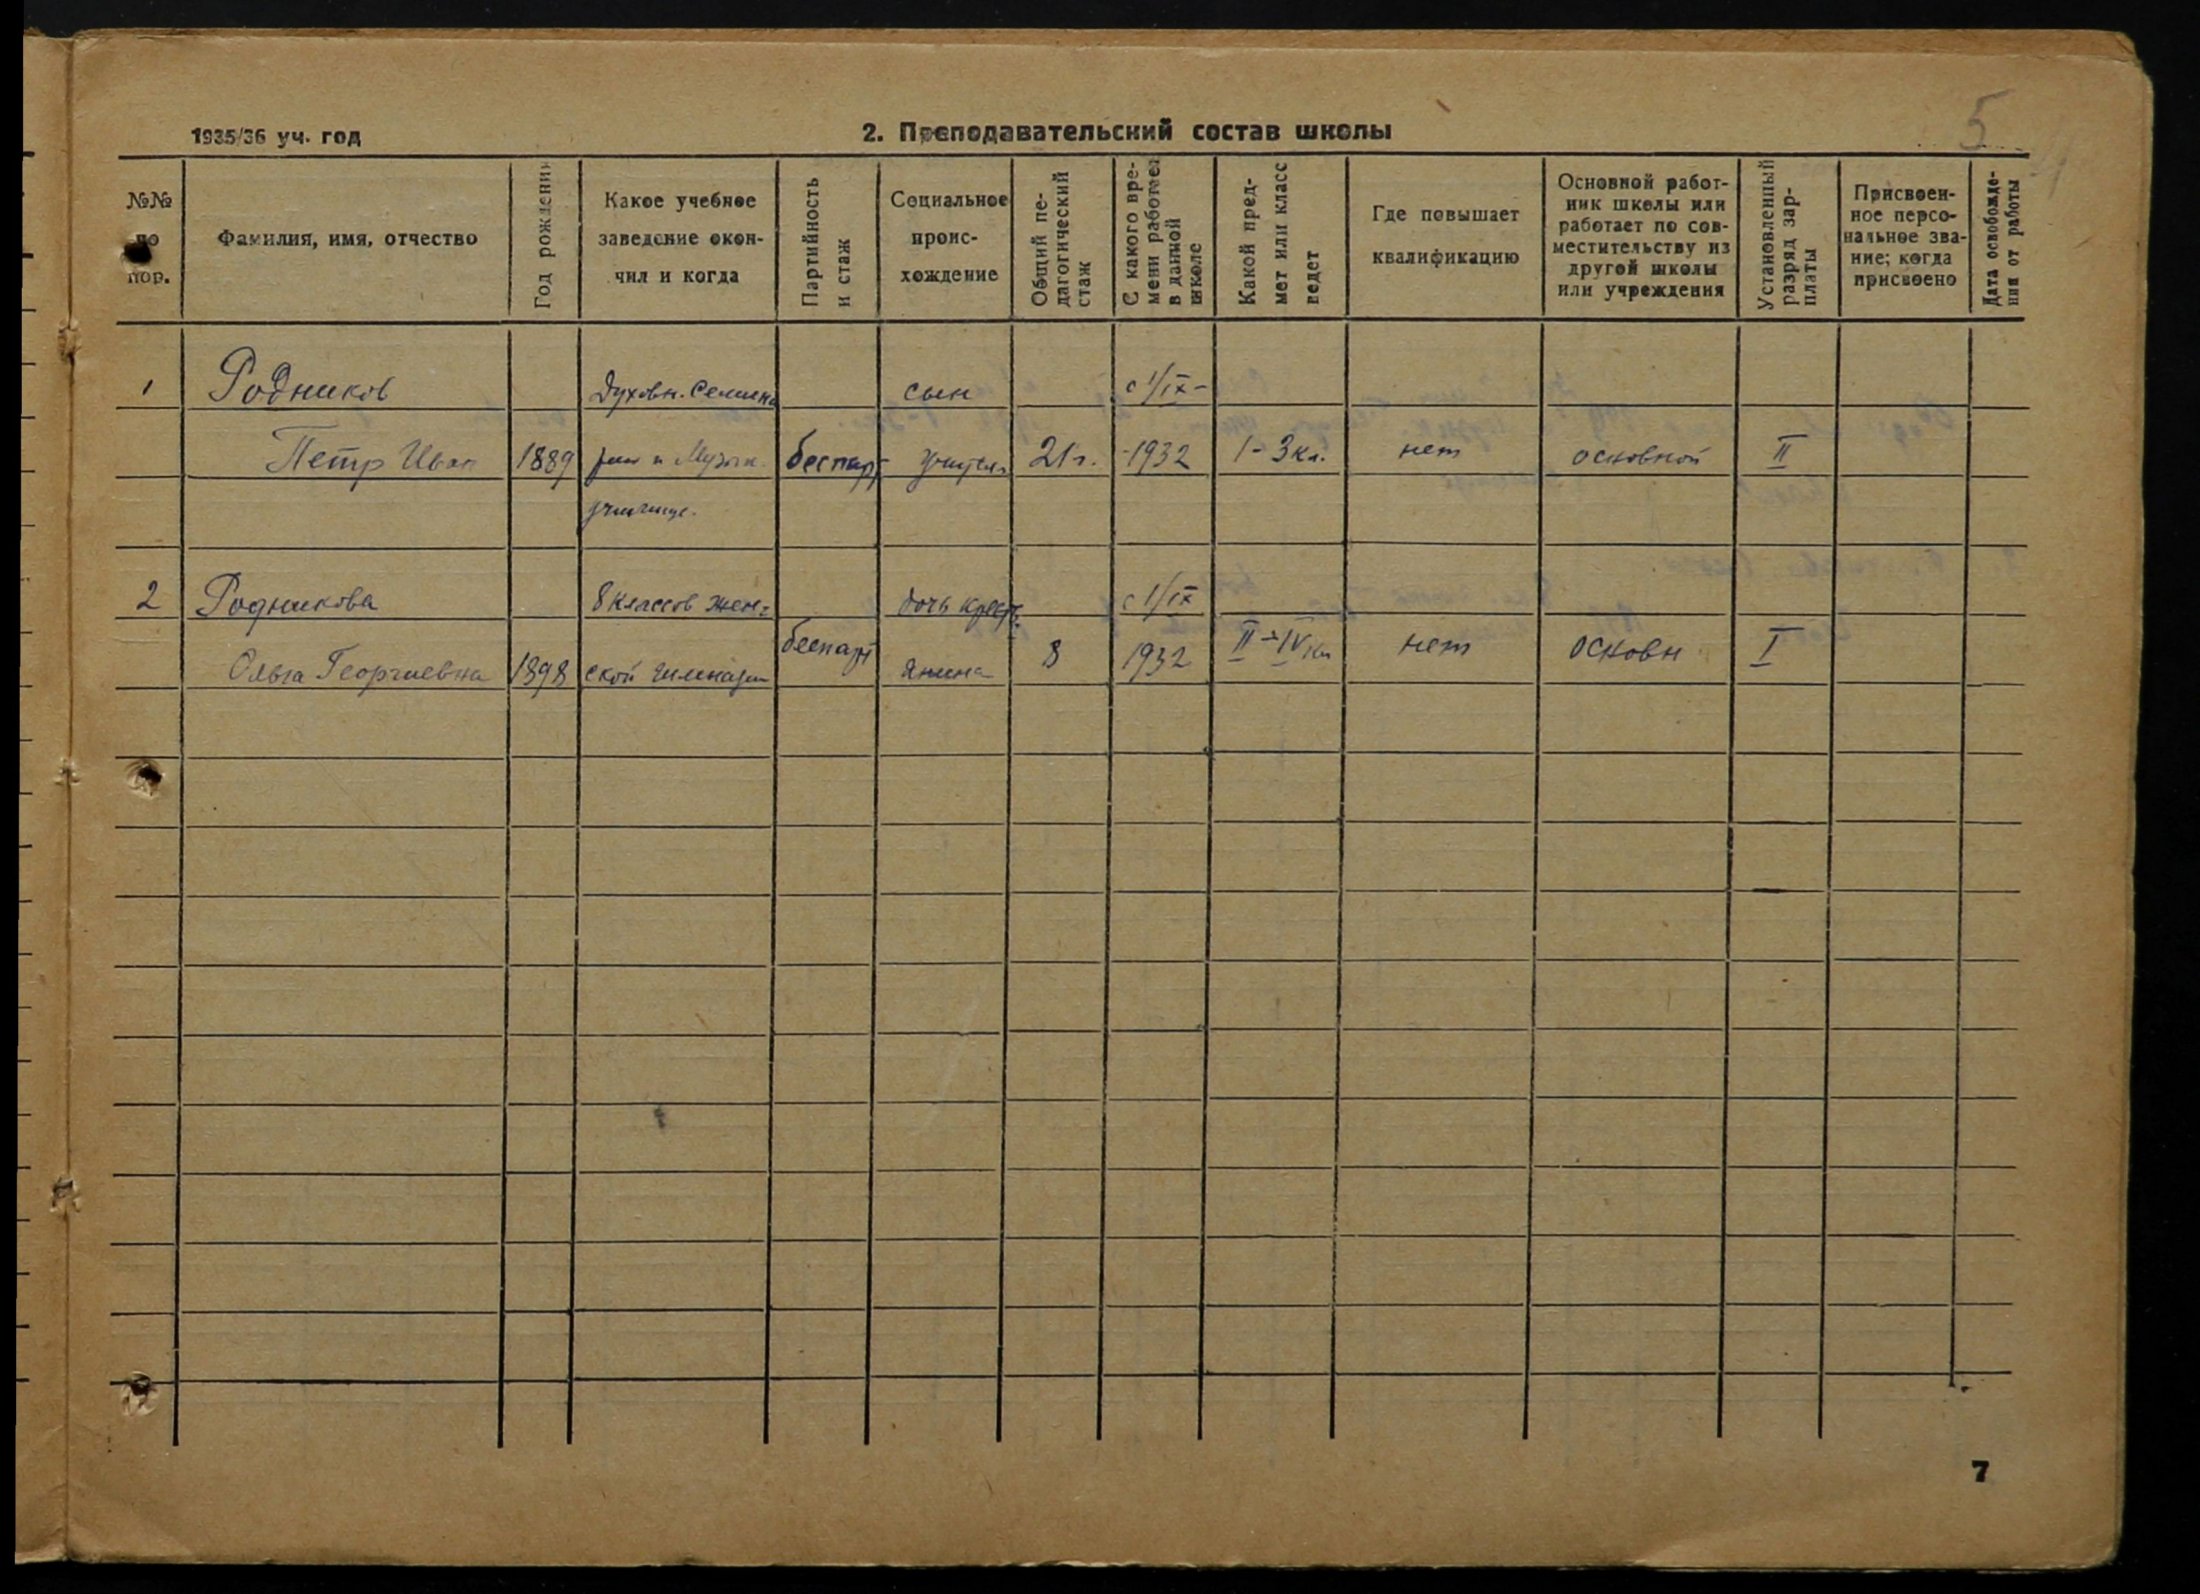 5
1935/36 уч. год
2. Преподавательский состав школы
№№ по пор.
Фамилия, имя, отчество
Год рождения
Какое учебное заведение окончил и когда
Партийность и стаж
Социальное происхождение
Общий педагогический стаж
С какого времени работает в данной школе
Какой предмет или класс ведет
Где повышает квалификацию
Основной работник школы или работает по совместительству из другой школы или учреждения
Установленный разряд зарплаты
Присвоенное персональное звание; когда присвоено
Дата освобождения от работы
1 Родников Духовн. Семина сын с 1/IX-
Петр Иван 1889 рия и Музык. беспарт учителя 21 г. -1932 1-3 кл. нет основной II
училище.
2 Родникова 8 классов жен- дочь крест- с 1/IX
Ольга Георгиевна 1898 ской гимназии беспарт янина 8 1932 II-IV кл нет основн I
7